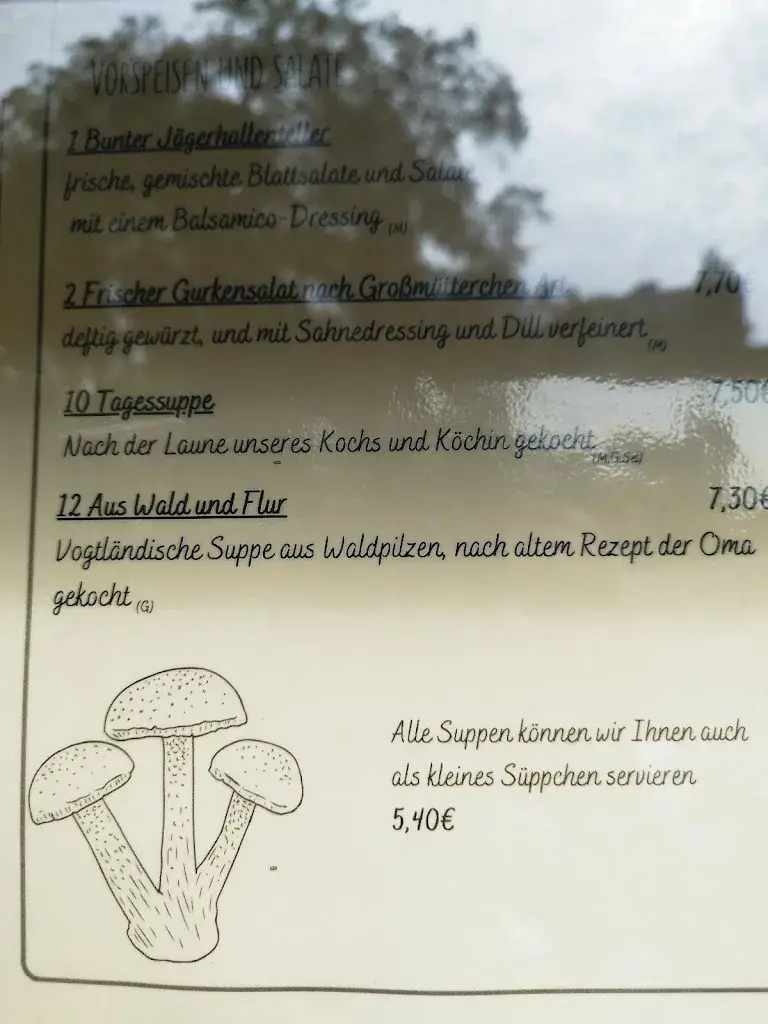 VORSPEISEN UND SALATE
1 Bunter Jägerhallenteller
frische, gemischte Blattsalate und
mit einem Balsamico-Dressing (M)
2 Frischer Gurkensalat nach Großmütterchen Art 7,70€
deftig gewürzt, und mit Sahnedressing und Dill verfeinert (M)
10 Tagessuppe 7,50€
Nach der Laune unseres Kochs und Köchin gekocht (M,G,Sel)
12 Aus Wald und Flur 7,30€
Vogtländische Suppe aus Waldpilzen, nach altem Rezept der Oma
gekocht (G)
Alle Suppen können wir Ihnen auch
als kleines Süppchen servieren
5,40€